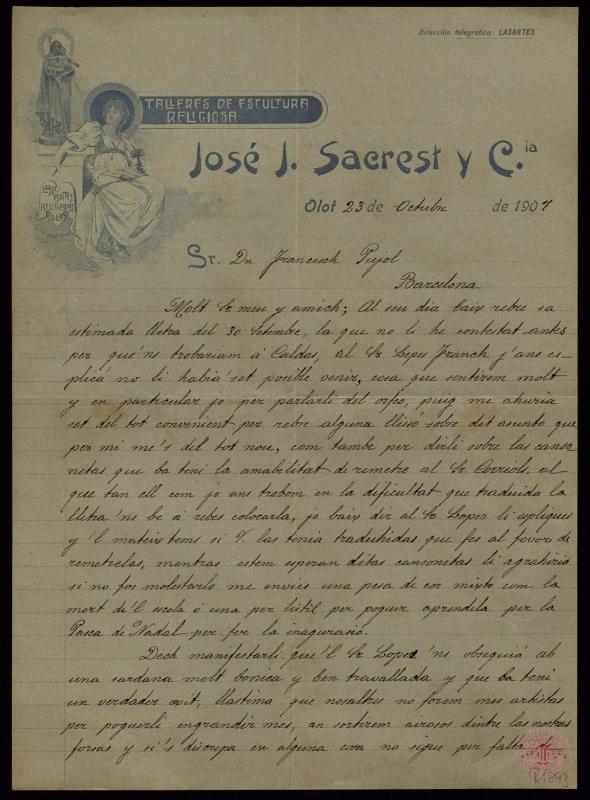 Dirección telegráfica: LASARTES
TALLERES DE ESCULTURA
RELIGIOSA
José J. Sacrest y C.ia
LAS ARTES
RELIGIOSAS
OLOT
Olot 23 de Octubre de 1907
Sr. Dn Francisch Pujol
Barcelona
Molt Sr meu y amich; Al seu dia baix rebre sa
estimada lletra del 30 Setembre, la que no li he contestat antes
per que'ns trobariam à Caldas, al Sr Lopes Franch j'ans es-
plicá no li habia'set posible venir, cosa que sentirem molt
y en particular jo per parlarli del orfeo, puig me ahuria
set del tot convenient per rebre alguna llisó sobre dit asunto que
per mi me's del tot nou, com tambe per dirli sobre las canso-
netas que ba teni la amabilitat de remetre al Sr. Corriols, al
que tan ell com jo ans trobem en la dificultat que traduida la
lletra 'ns be á rebes colocarla, jo baix dir al Sr Lopes li expliques
y 'l mateix tems si V. las tenia traduhidas que fes al favor de
remetrelas, mentras estem esperan ditas cansonetas li agrahiria
si no fos molestarlo me envies una pesa de cor mixto com la
mort de'l escola ó una per l'estil per poguer apendela per la
Pasca de Nadal per fer la inagurasió.
Dech manifestarli que'l Sr Lopes 'ns obsequiá ab
una sardana molt bonica y ben travallada y que ba teni
un verdader exit, llastima que nosaltres no forem mes artistas
per poguerli engrandir mes, an sortirem airosos dintre las nostras
forsas y si's discrepa en alguna cosa no sigue per falta de
R.1893